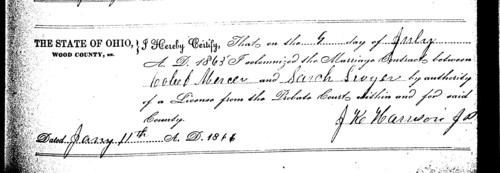 THE STATE OF OHIO, } I Hereby Certify, That on the 9 day of July
WOOD COUNTY, ss.
A. D. 1865 I solemnized the Marriage Contract between
Mercer and Sarah by authority
of a License from the Probate Court within and for said
County. J K Harrison J P
Dated Jany 11th A. D. 1866